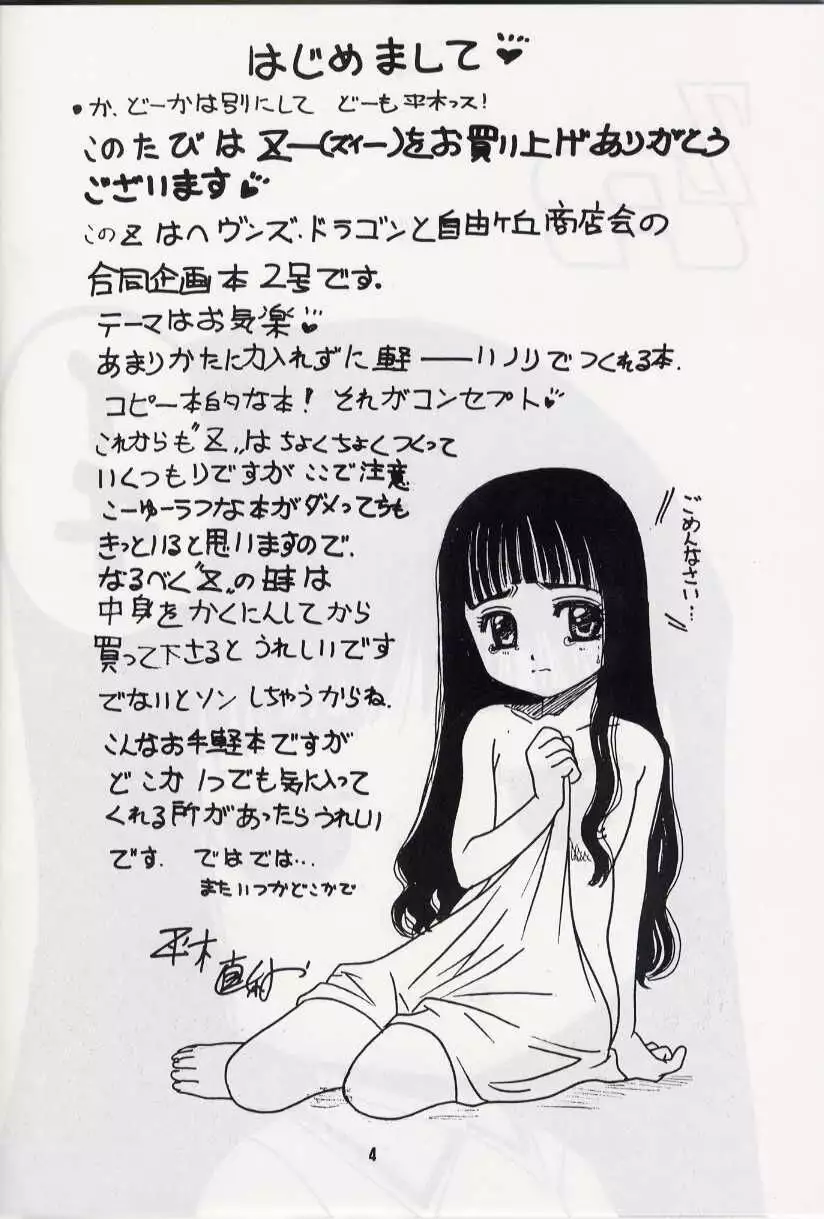 はじめまして♥
・か、どーかは別にして どーも平木っス!
このたびは Z―(ズィー)をお買い上げありがとう
ございます♥
このZはヘヴンズ・ドラゴンと自由ケ丘商店会の
合同企画本2号です.
テーマはお気楽♥
あまりかたに力入れずに軽――いノリでつくれる本.
コピー本的な本! それがコンセプト♥
これからも"Z"はちょくちょくつくって
いくつもりですが ここで注意
こーゆーうつな本がダメってちも
きっといると思いますので、
なるべく"Z"の時は
中身をかくにんしてから
買って下さると うれしいです
でないとソン しちゃうからね.
こんなお手軽本ですが
どこか1つでも気に入って
くれる所があったらうれしい
です. ではでは…
またいつかどこかで
平木直利
ごめんなさい…
4